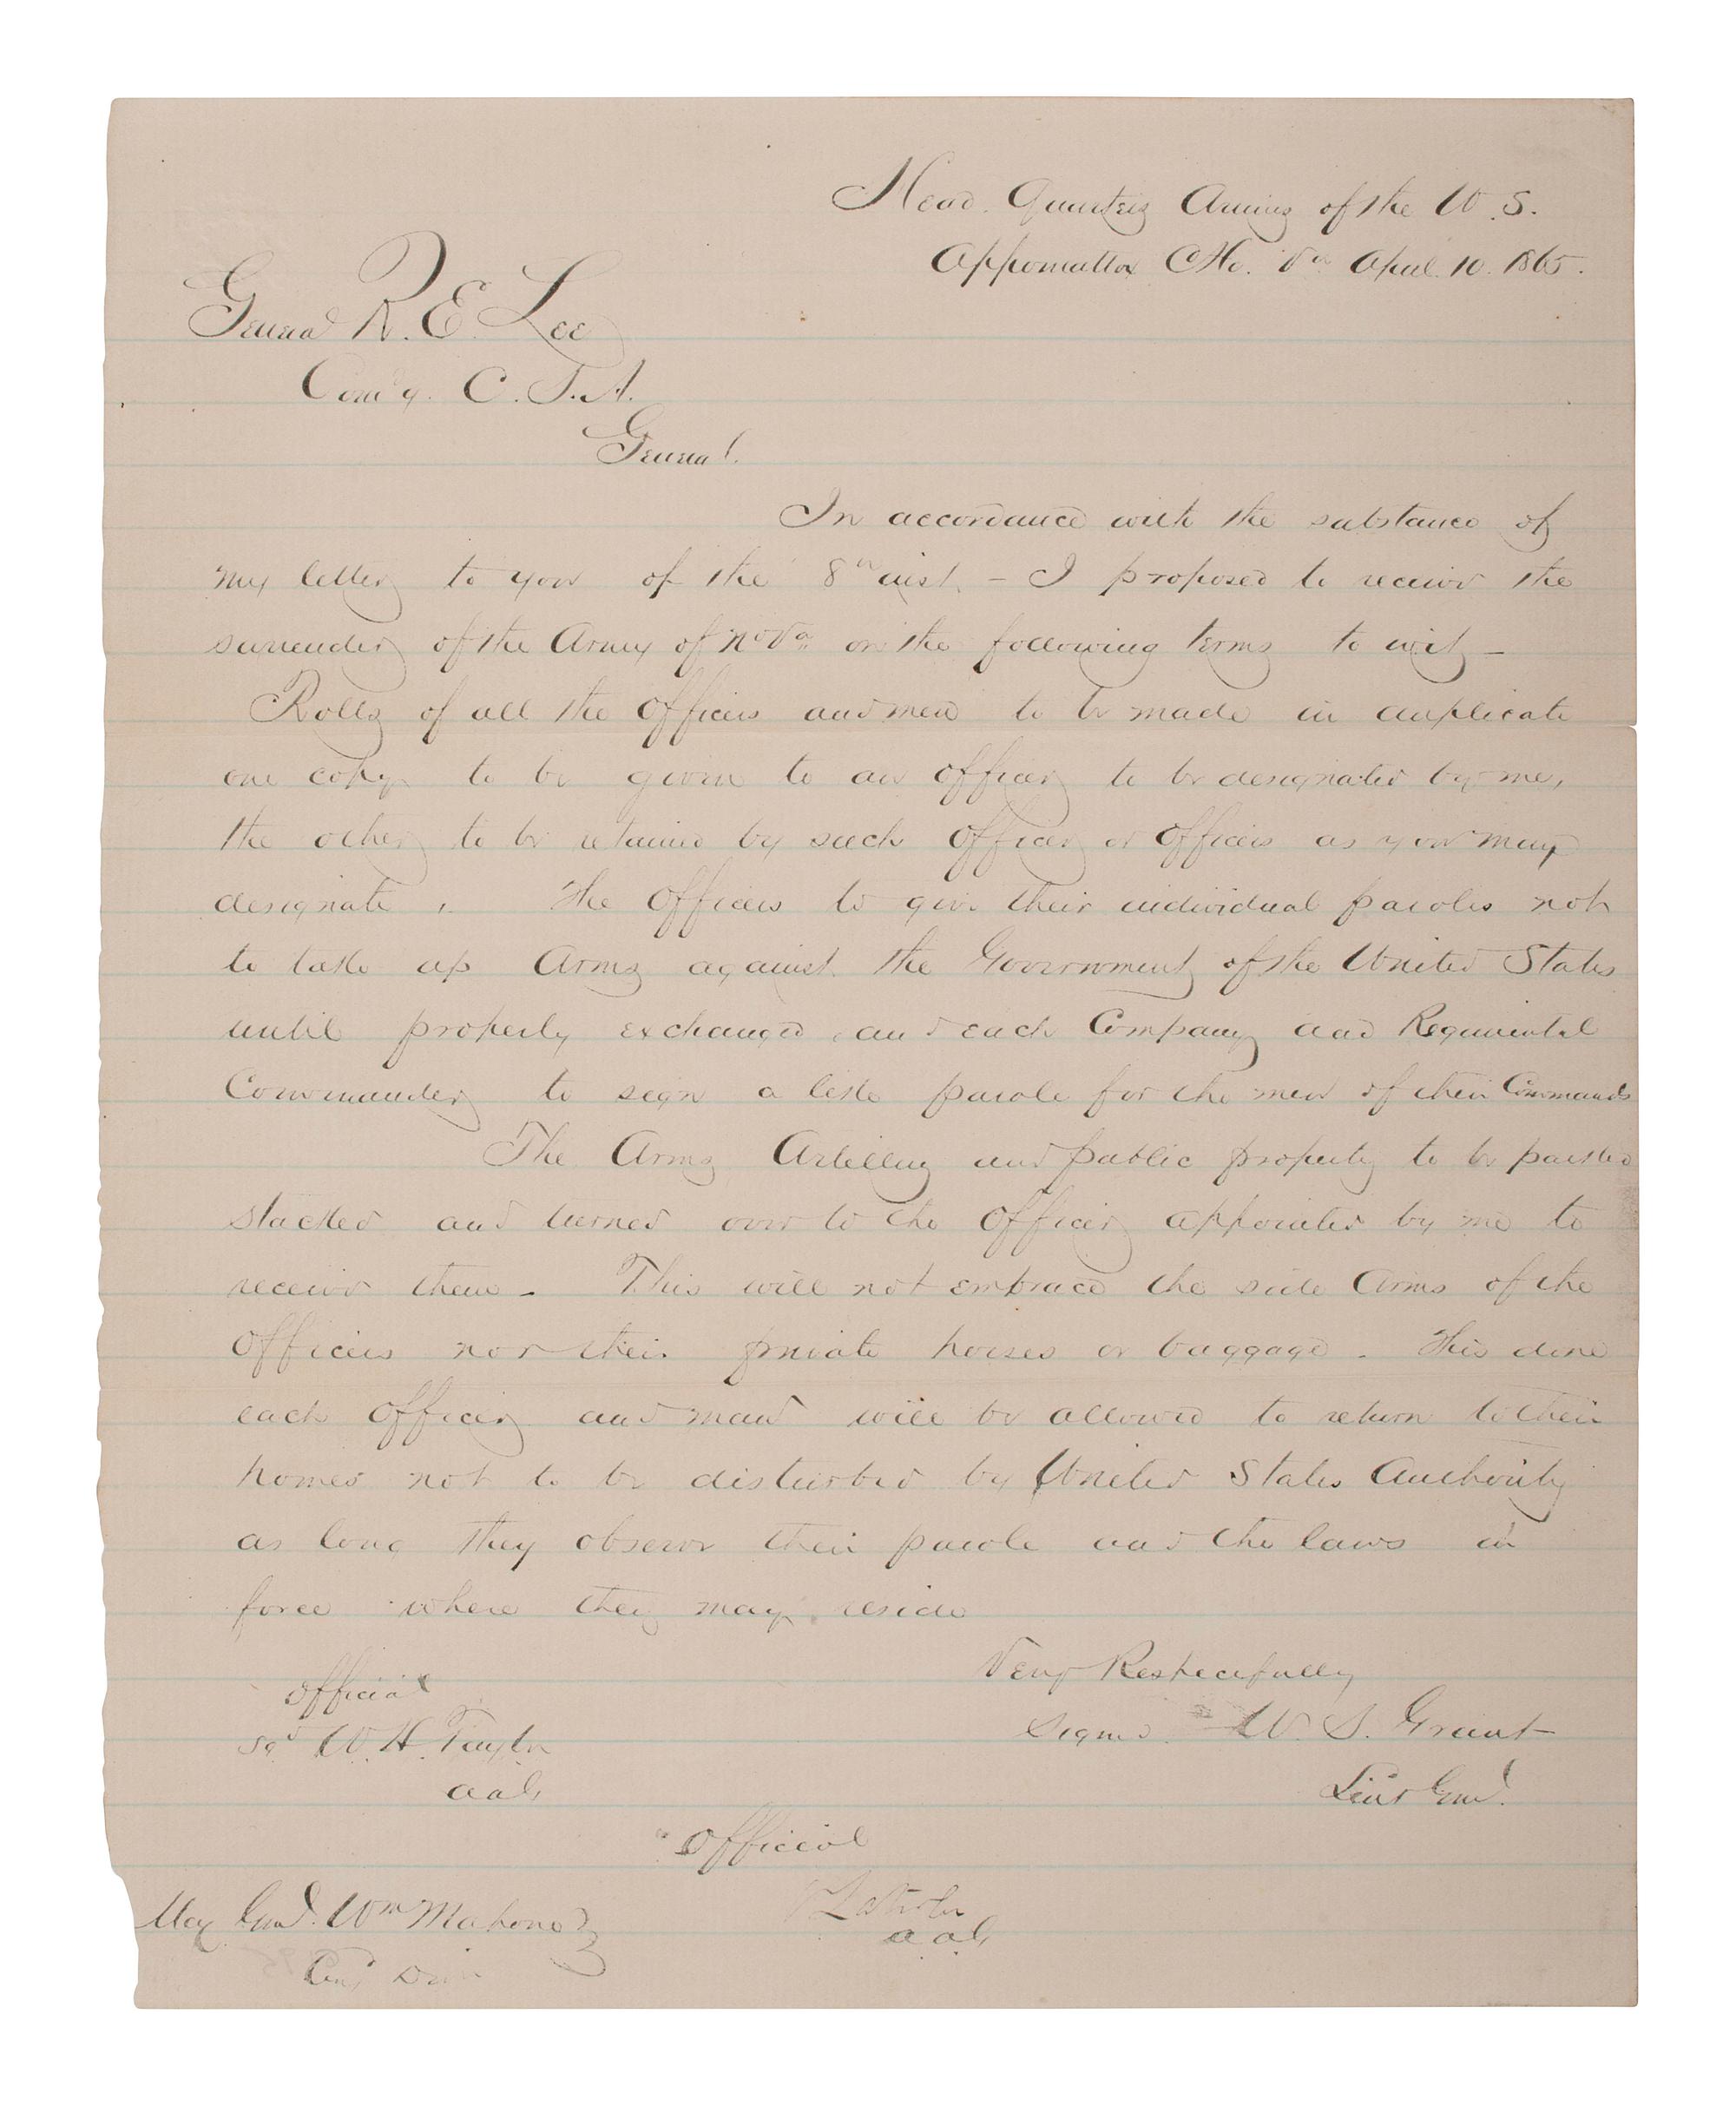 Head Quarters Armies of the U. S.
Appomattox C Ho. Va April 10. 1865.
General R. E. Lee
Com'g. C. S. A.
General.
In accordance with the substance of
my letter to you of the 8th inst. – I proposed to receive the
surrender of the Army of No Va on the following terms to wit –
Rolls of all the Officers and men to be made in duplicate
one copy to be given to an officer to be designated by me,
the other to be retained by such officer or officers as you may
designate. The Officers to give their individual paroles not
to take up Arms against the Government of the United States
until properly exchanged, and each Company and Regimental
Commander to sign a like parole for the men of their Commands
The Arms Artillery and public property to be parked
stacked and turned over to the Officer appointed by me to
receive them – This will not embrace the side Arms of the
Officers nor their private horses or baggage – This done
each officer and man will be allowed to return to their
homes not to be disturbed by United States Authority
as long they observe their parole and the laws in
force where they may reside
Very Respectfully
Official
Signed U. S. Grant
Sgd W. H. Taylor
Lieut Genl.
a a G
Official
Latrobe
Maj Genl. Wm Mahone
a a G
Comg Div